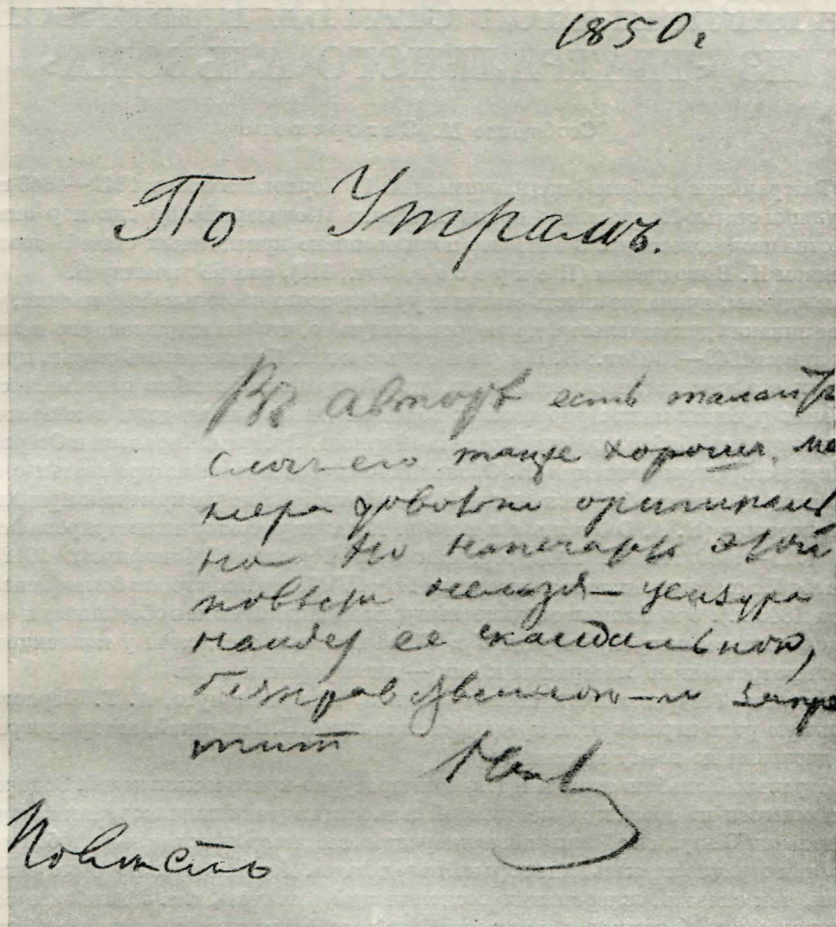 1850 г
По Утрамъ.
Въ авторѣ есть талантъ
слог его также хорош, ма
нера довольно оригиналь
на Но напечатать этой
повѣсти нельзя — цензура
найдет ее скандальной,
безнравственною — и запре
тит
Повесть